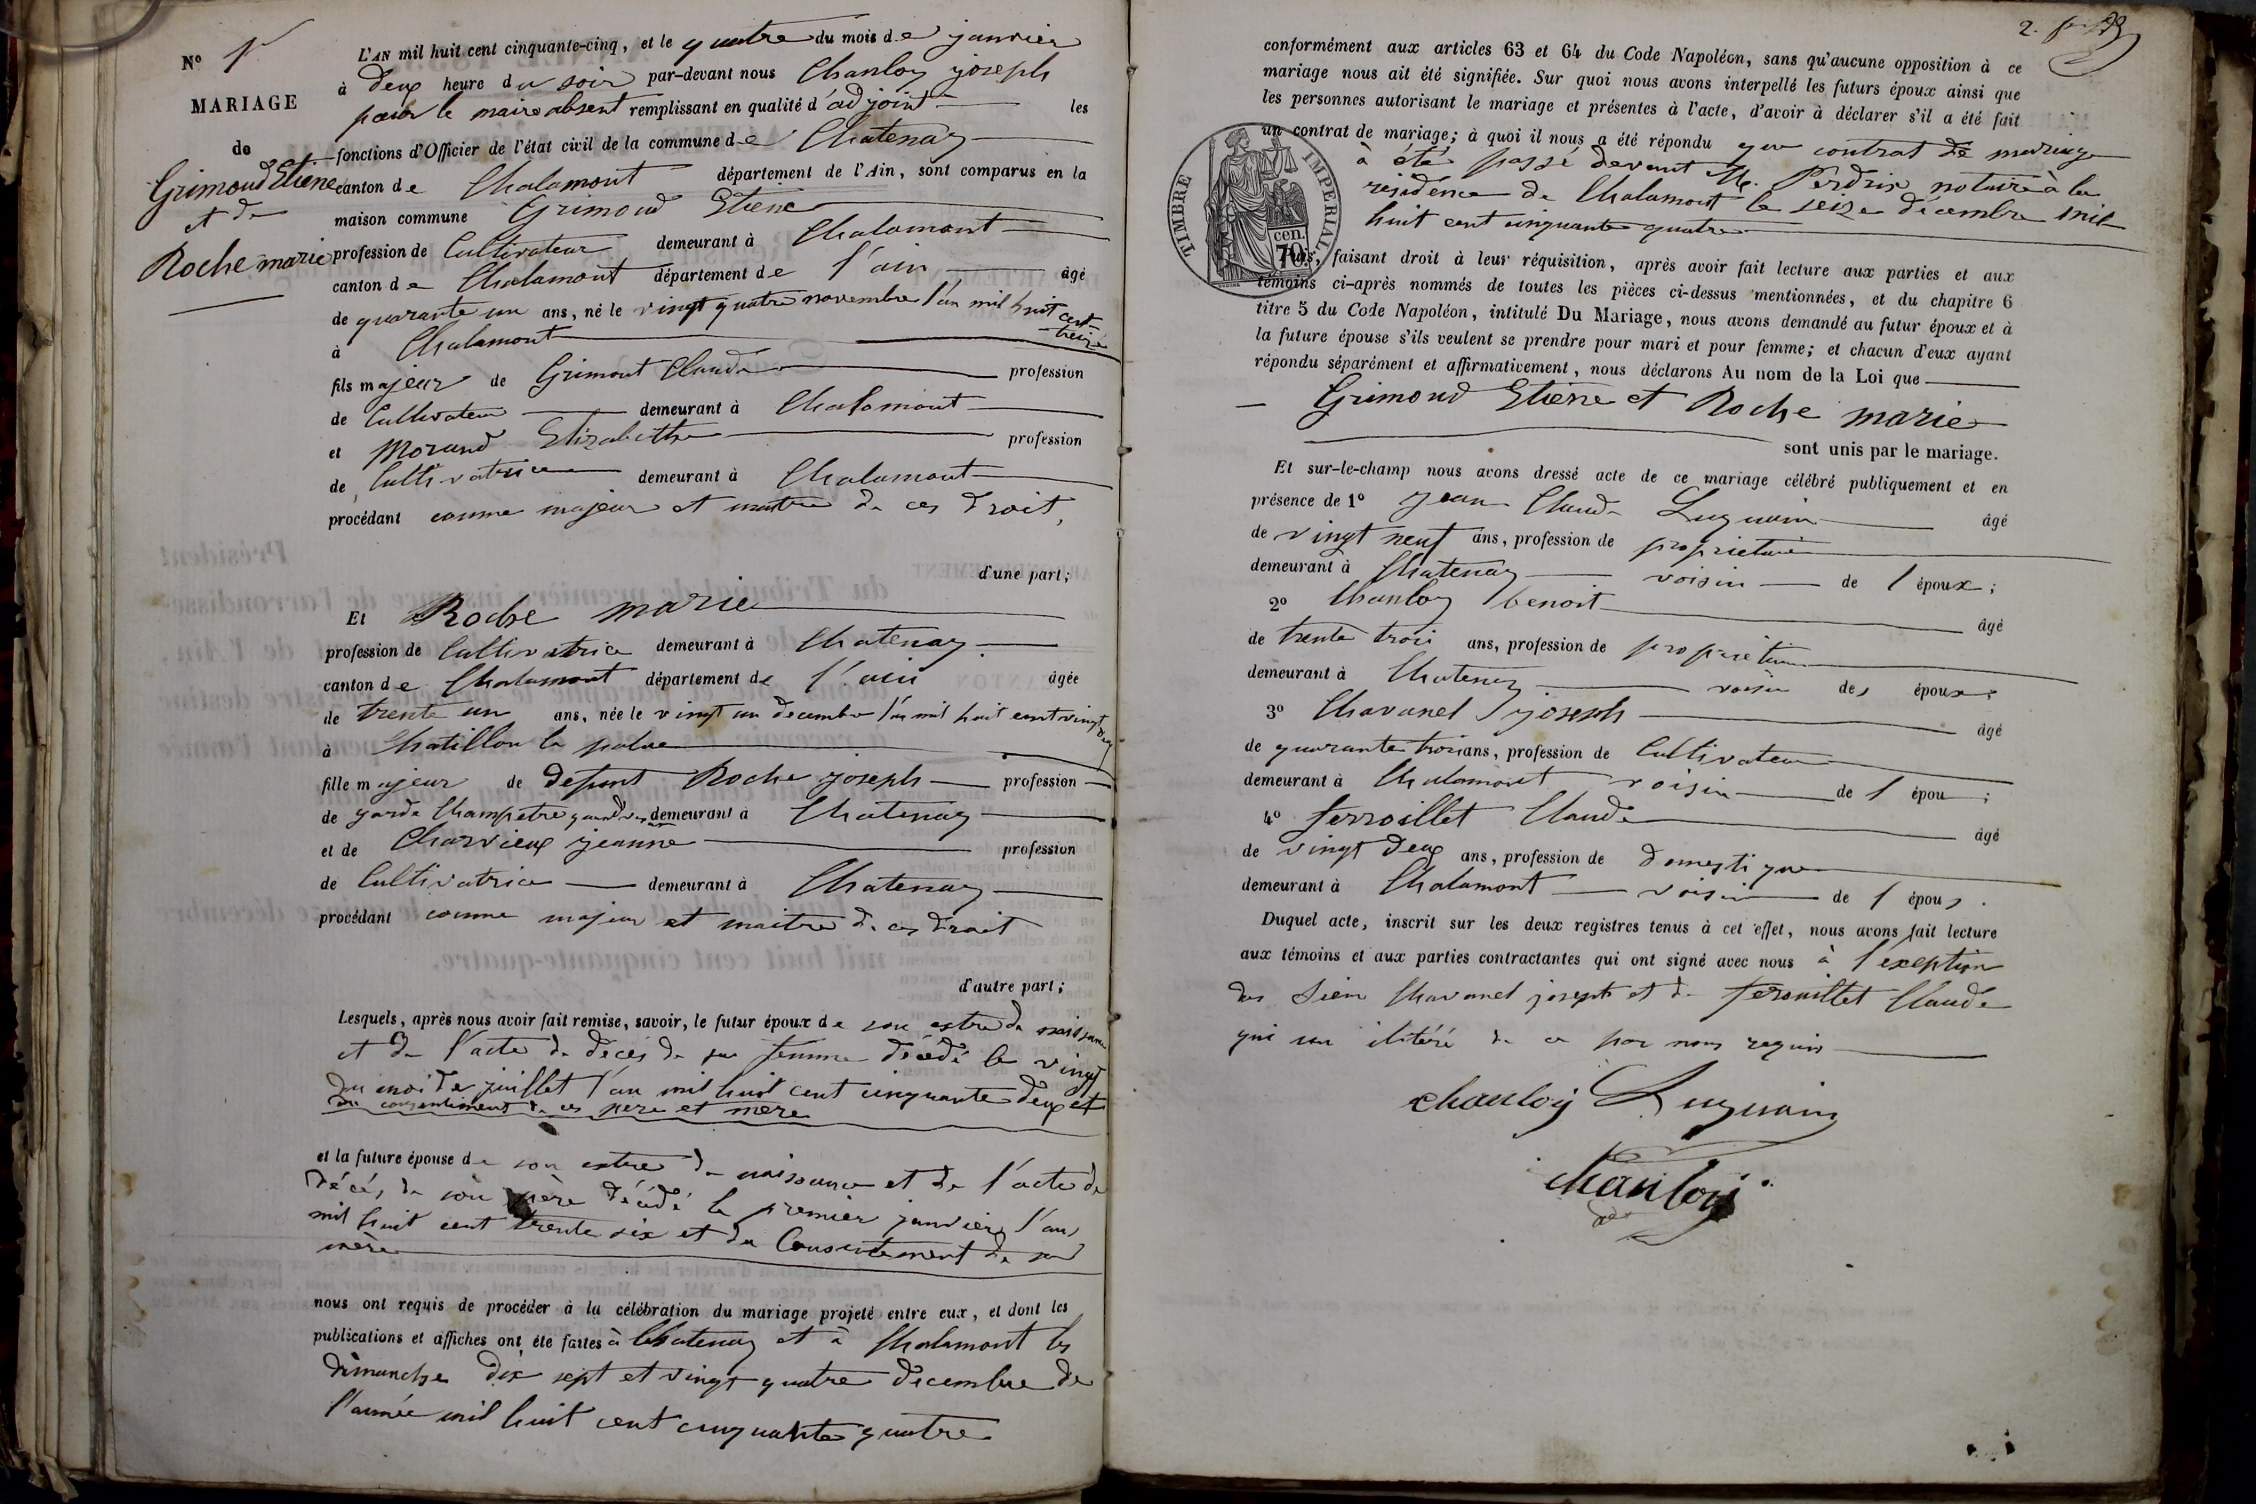 N° 1er
MARIAGE
de
Grimoud Etiene
et de
Roche marie
L'AN mil huit cent cinquante-cinq, et le quatre du mois de janvier
à deux heure du soir par-devant nous Chanloy joseph
pour le maire absent remplissant en qualité d'adjoint les
fonctions d'Officier de l'état civil de la commune de Chatenay
canton de Chalamont département de l'Ain, sont comparus en la
maison commune Grimoud Etiene
profession de Cultivateur demeurant à Chalamont
canton de Chalamont département de l'ain âgé
de quarante un ans, né le vingt quatre novembre l'an mil huit cent treize
à Chalamont
fils majeur de Grimont Claude profession
de Cultivateur demeurant à Chalamont
et Morand Elizabethe profession
de Cultivatrice demeurant à Chalamont
procédant comme majeur et maitre de ces droit,
d'une part;
Et Roche marie
profession de Cultivatrice demeurant à Chatenay
canton de Chalamont département de l'ain âgée
de trente un ans, née le vingt un decembre l'an mil huit cent vingt deux
à Chatillon la palue
fille majeur de defunt Roche joseph profession
de garde Champetre demeurant à Chatenay
et de Charvieux jeanne profession
de Cultivatrice demeurant à Chatenay
procédant comme majeur et maitre de ces droit
d'autre part;
Lesquels, après nous avoir fait remise, savoir, le futur époux de son extre de naissance
et de l'acte de décés de sa femme décédé le vingt
du moi de juillet l'an mil huit cent cinquante deux et
du consentiment de ces pere et mere
et la future épouse de son extre de naissance et de l'acte de
décés de son père décédé le premier janvier l'an
mil huit cent trente six et du Consentement de sa
mère
nous ont requis de procéder à la célébration du mariage projeté entre eux, et dont les
publications et affiches ont été faites à Chatenay et à Chalamont les
dimanche dix sept et vingt quatre decembre de
l'année mil huit cent cinquante quatre
2.
conformément aux articles 63 et 64 du Code Napoléon, sans qu'aucune opposition à ce
mariage nous ait été signifiée. Sur quoi nous avons interpellé les futurs époux ainsi que
les personnes autorisant le mariage et présentes à l'acte, d'avoir à déclarer s'il a été fait
un contrat de mariage; à quoi il nous a été répondu que contrat de mariage
à été passé devant Me. Perdrix notaire à la
résidence de Chalamont le seize décembre mil
huit cent cinquante quatre
TIMBRE IMPERIAL
70 cen.
Puis, faisant droit à leur réquisition, après avoir fait lecture aux parties et aux
témoins ci-après nommés de toutes les pièces ci-dessus mentionnées, et du chapitre 6
titre 5 du Code Napoléon, intitulé Du Mariage, nous avons demandé au futur époux et à
la future épouse s'ils veulent se prendre pour mari et pour femme; et chacun d'eux ayant
répondu séparément et affirmativement, nous déclarons Au nom de la Loi que
Grimoud Etiene et Roche marie
sont unis par le mariage.
Et sur-le-champ nous avons dressé acte de ce mariage célébré publiquement et en
présence de 1° jean Claude Luquain âgé
de vingt neuf ans, profession de proprietaire
demeurant à Chatenay voisin de l époux;
2° Chanloy benoit âgé
de trente troi ans, profession de proprietaire
demeurant à Chatenay voisin des époux;
3° Chavanel joseph âgé
de quarante trois ans, profession de Cultivateur
demeurant à Chalamont voisin de l épou;
4° ferroillet Claude âgé
de vingt deux ans, profession de domestique
demeurant à Chalamont voisin de l épous.
Duquel acte, inscrit sur les deux registres tenus à cet effet, nous avons fait lecture
aux témoins et aux parties contractantes qui ont signé avec nous à l'exeption
des sieur Chavanel joseph et de ferouillet Claude
qui un ilitéré de ce par nous requis
chanloy Luquain
chanloy
adj